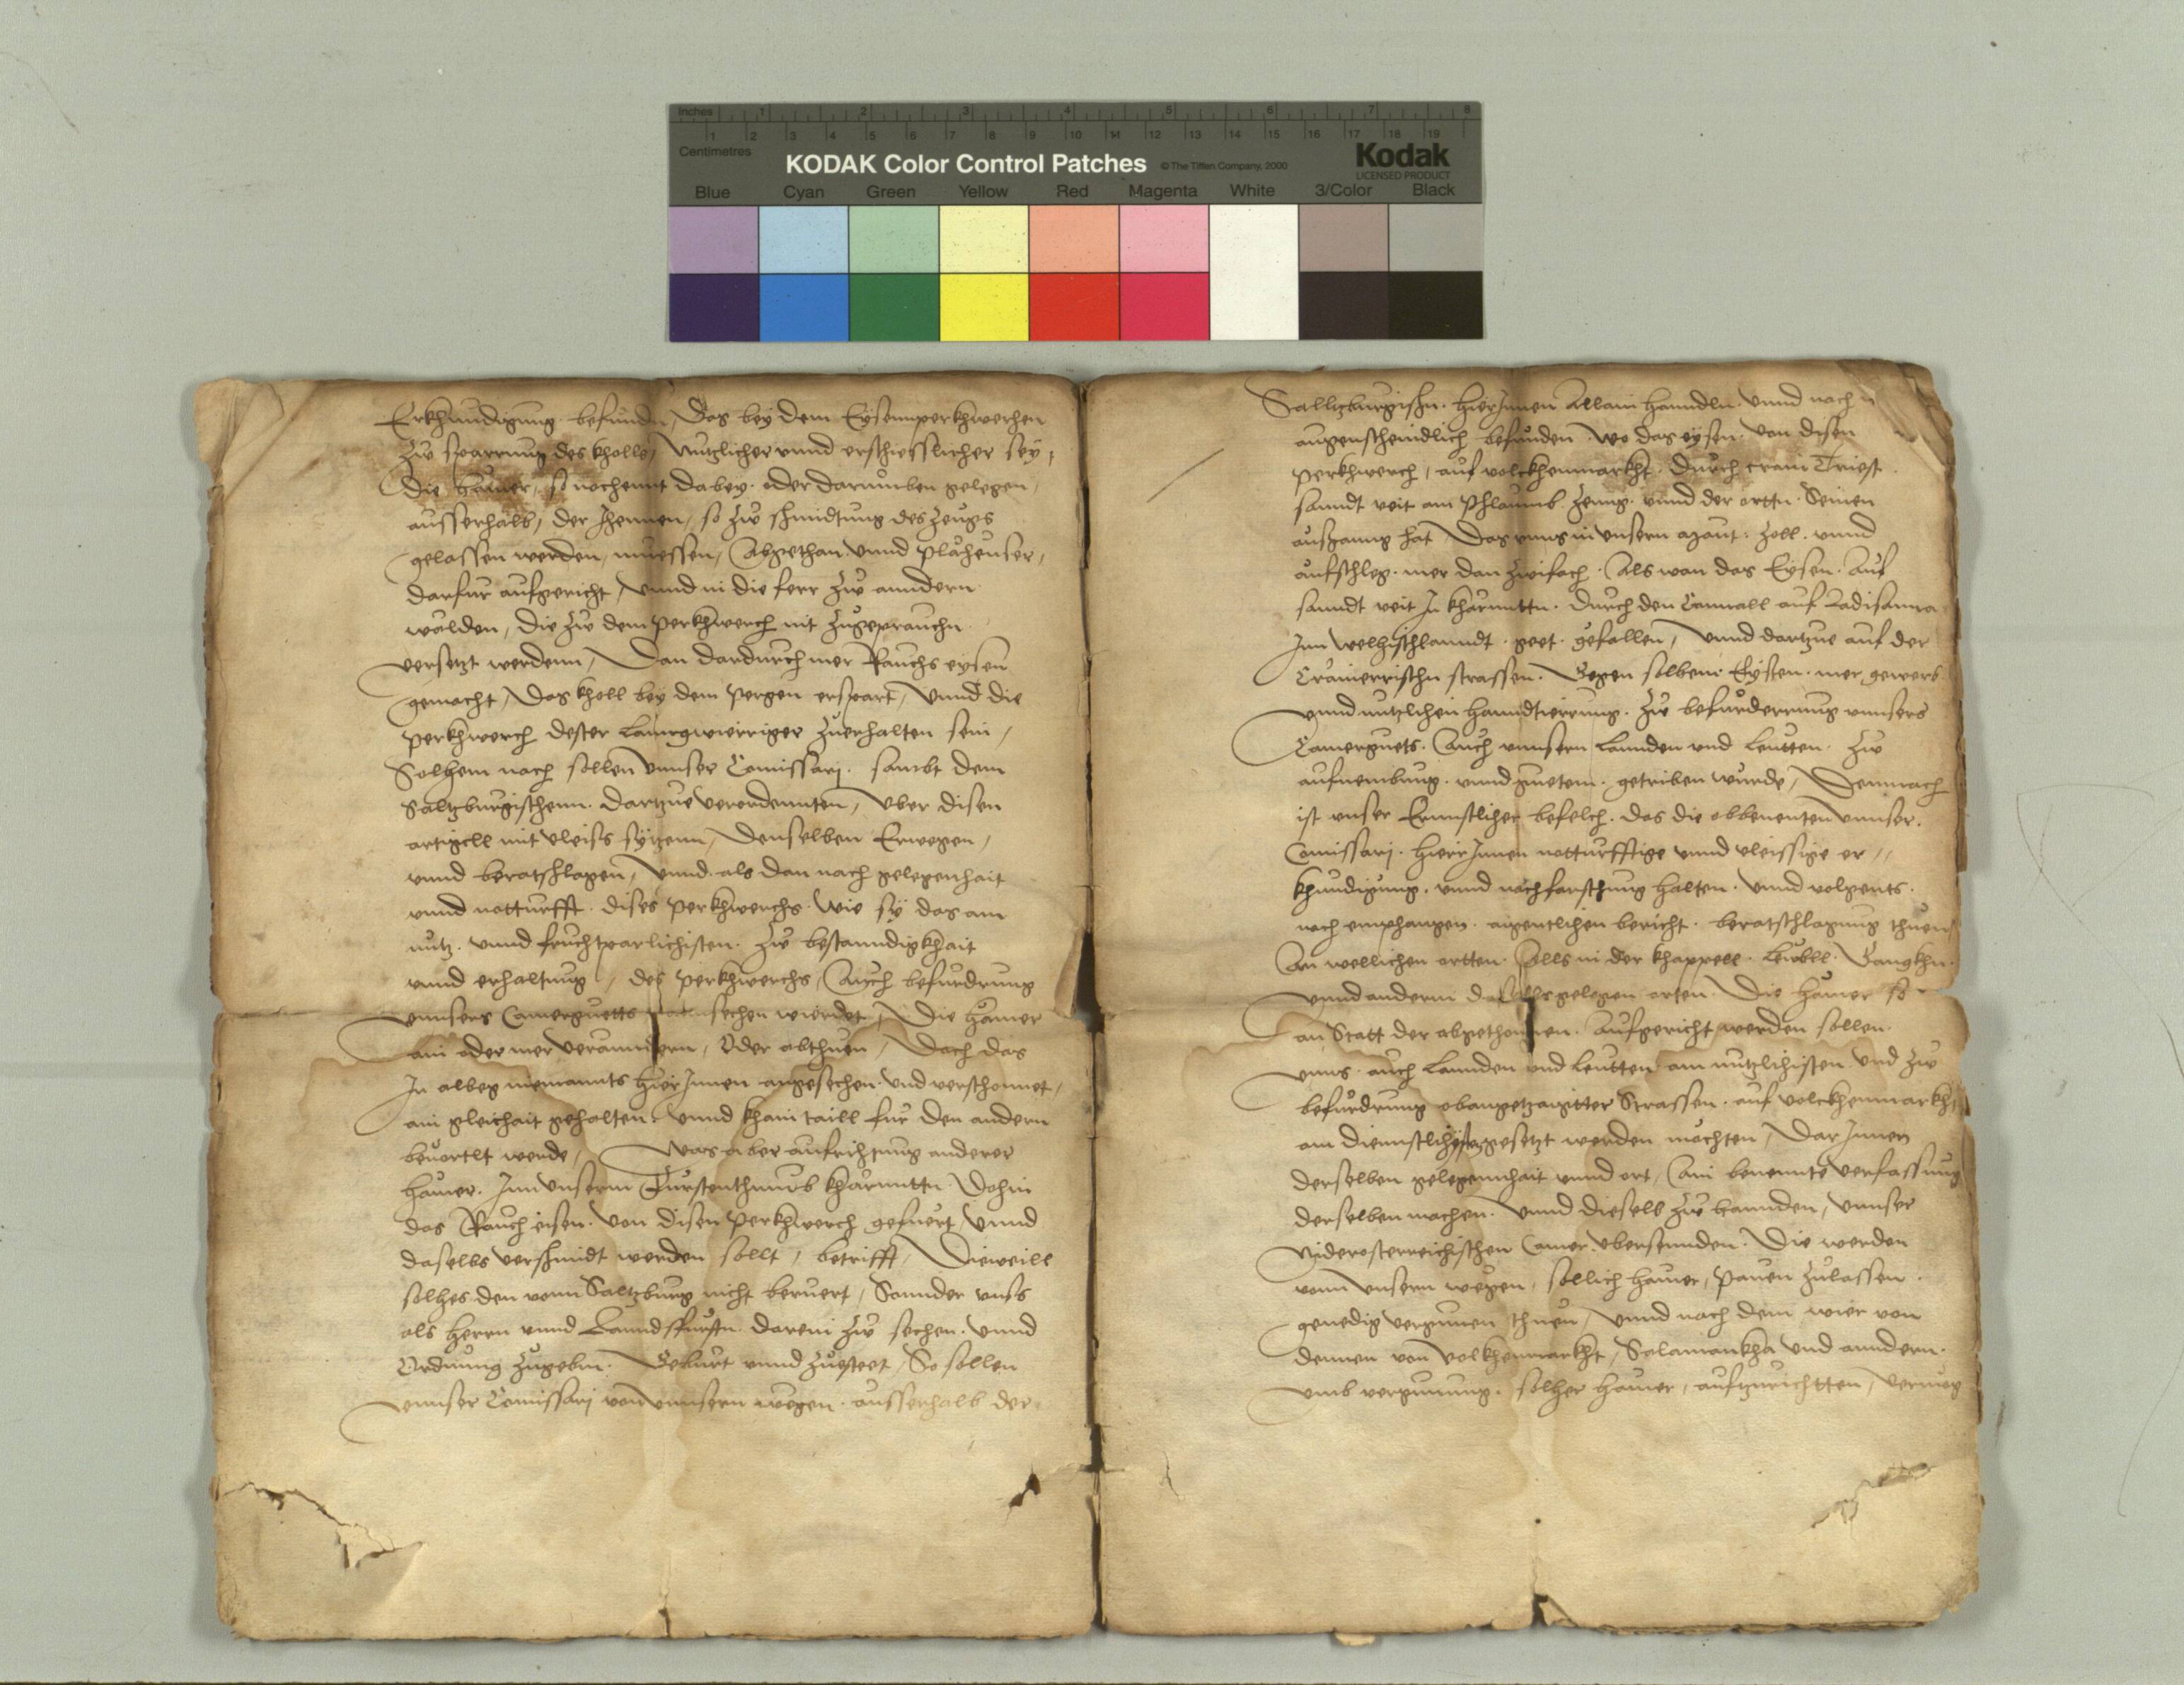 Inches 1 2 3 4 5 6 7 8
Centimetres 1 2 3 4 5 6 7 8 9 10 11 12 13 14 15 16 17 18 19
KODAK Color Control Patches © The Tiffen Company, 2000 Kodak
LICENSED PRODUCT
Blue Cyan Green Yellow Red Magenta White 3/Color Black
Erkhundigung befunden, Das bey dem Eysennperkhwerhen
Zw sparrung des kholls, Nutzlicher unnd erschiesslicher sey,
die hämer, so nochennt dabey oder darumben gelegen,
ausserhalb, der Jhennen, so zw schmidtung des zeugs
gelassen werden, muessen, Abgethan unnd plaheuser,
darfur aufgericht, unnd in die ferr zw anndern
wälden, die zw dem perkhwerch nit zugeprauchn
versetzt werdenn, Dan dardurch mer Rauchs eysen
gemacht, das kholl bey dem pergen erspart, unnd die
perkhwerch dester lanngwierriger zuerhalten sein,
Solhem nach sollen unnser Comissarj sambt dem
Saltzburgischenn dartzue verordennten, uber disen
artigell mit vleiss sytzenn, denselben Erwegen,
unnd beratschlagen, unnd als dan nach gelegenhait
unnd notturfft dises perkhwerchs wie sy das am
nutz unnd fruchtparlichisten zw bestanndigkhait
unnd erhaltung, des perkhwerchs, Auch befurdrung
unnsers Camerguetts sechen wierdet, die hämer
ain oder mer verannndern, Oder abthuen, doch das
In albeg niemannts hierJnnen angesechen und verschonnet,
ain gleichait gehalten unnd khain taill fur den andern
bevortlt werde, Was aber aufrichtung anderer
hämer Jnn unserm Furstenthumb khärnntn dohin
das Rauch eisen von disen perkhwerch gefuert, unnd
daselbs verschmidt werden sollt, betrifft, Dieweill
solhes den vonn Saltzburg nicht beruert, Sonnder unss
als herrn unnd Lanndsfursten darein zw sechen unnd
Ordnung zugeben Geburt unnd zuesteet, So sollen
unnser Comissarj von unnsern wegen ausserhalb der
Saltzburgischn hierJnnen Allain hanndln unnd nach
augenscheindlich befunden wo das eysen von disen
perkhwerch, auf volckhenmarkht durch crain Triest
sanndt veit am Phlaumb Zenng unnd der orttn Seinen
ausganng hat, Das unns in unsern Zoll unnd
aufschlag mer dan zwifach Als wan das Eysen Auf
sanndt veit In khärnntn durch den Cannall auf
Jnn welhischlanndt geet gefallen, unnd dartzue auf der
Crainerrischn strassen Gegen solhem Eysen mer gewerb
unnd nutzlichen hanndtierrung zw befurderrung unnsers
Camerguets Auch unnsern lannden und leutten zw
aufnembung unnd guetem getriben wurde, Demnach
ist unser Ernnstlicher befelch das die obbenenten unnser
Comissarj hierJnnen notturfftige unnd vleissige er
khundigung unnd nachforschung halten unnd volgents
nach emphangen aigentlichen bericht beratschlagung thuen
An wellichen ortten Alls in der khappell
unnd anderm gelegen orten die hämer so
an Statt der abgethonnen Aufgericht werden sollen
unns auch lannden und leutten am nutzlichisten und zw
befurdrung obangetzaigter Strassen auf volckhenmarkht
am diennstlichisten gesetzt werden möchten, DarJnnen
derselben gelegennhait unnd ort, Ain benennte verfassung
derselben machen unnd dieselb zw hannden, unnser
Niderosterreichischen Camer ubersennden die werden
vonn unsern wegen, sollich hämer, pauen zulassen
genedig vergunnen thuen, unnd nach dem wier von
dennen von Volkhenmarkht, Salamankha und anndern
umb vergunnung solher hämer, aufzurichtten, vermog